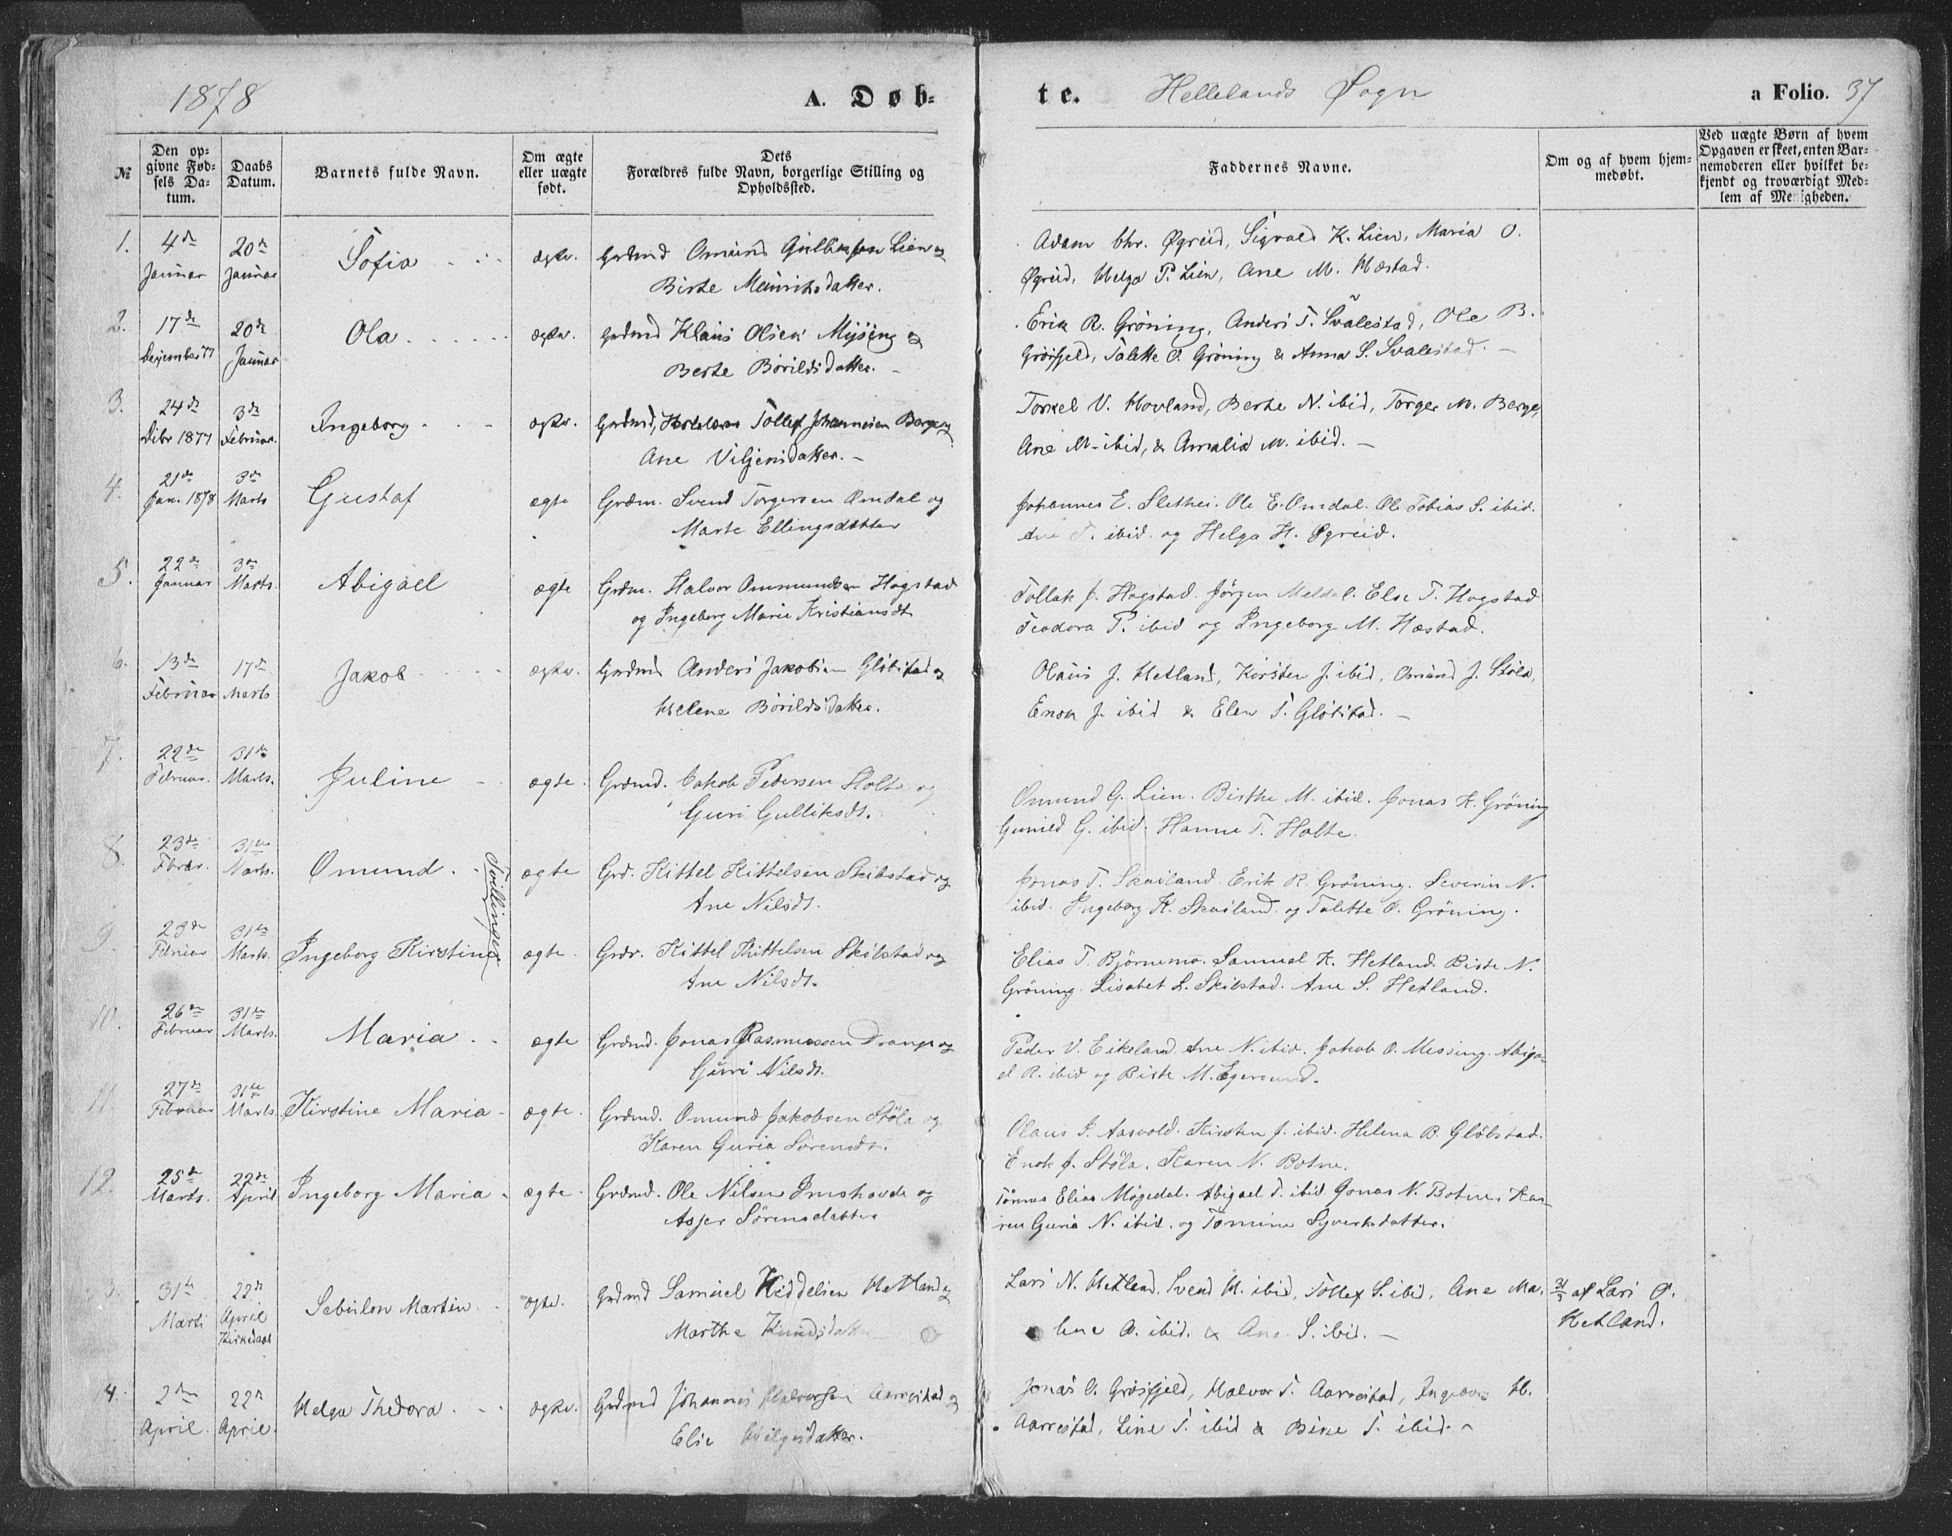 1878
A. Døb-
te.
Hellelands Sogn
a Folio. 37
№
Den op-
givne Fød-
sels Da-
tum.
Daabs
Datum.
Barnets fulde Navn.
Om ægte
eller uægte
født.
Dets
Forældres fulde Navn, borgerlige Stilling og
Opholdssted.
Faddernes Navne.
Om og af hvem hjem-
medøbt.
Ved uægte Børn af hvem
Opgaven er skeet, enten Bar-
nemoderen eller hvilket be-
kjendt og troværdigt Med-
lem af Menigheden.
1. 4de 20de Sofia ægte. Grdmd Omund Lien og
Januar Januar Birte
Adam Øgreid, Sigvald K. Lien, Maria O.
Øgreid, Helga P. Lien, Ane M. Hæstad.
2. 17de 20de Ola ægte. Grdmd Klaus Olsen Mysing og
Januar Berte Børildsdatter.
Erik R. Grøning, Anders T. Svalestad, Ole B.
Grøsfjeld, Talette O. Grøning & Anna S. Svalestad.
3. 24de 3de Ingeborg ægte. Grdmd, Tollef Johannesen Berge og
Dcbr 1877 Februar. Ane Viljemsdatter.
Torkel V. Hovland, Berte N. ibid, Torger M. Berge,
Ane M. ibid, & Amalia M. ibid.
4. 21de 3de Gustaf ægte Grdm. Svend Torgersen Omdal og
Jan. 1878 Marts Marte Ellingsdatter
Johannes E. Slethei. Ole E. Omdal. Ole Tobias S. ibid.
Ane T. ibid. og Helga H. Øgreid.
5. 22de 3de Abigael ægte Grdm. Halvor Ommundsen Hogstad
Januar Marts. og Ingeborg Marie Kristiansdt
Tollak J. Hogstad. Jørgen Meldal. Else T. Hogstad
Teodora T. ibid og Ingeborg M. Hæstad.
6. 13de 17de Jakob ægte. Grdmd Anders Jakobsen Gløbstad og
Februar Marts Helene Børildsdatter.
Olaus J. Hetland, Kirsten J. ibid, Omund J. Støla,
Enok J. ibid & Elen T. Gløbstad.
7. 22de 31te Juline ægte. Grdmd. Jakob Pedersen Holte og
Februar. Marts. Guri Gulliksdt.
Omund G. Lien. Birthe M. ibid. Jonas K. Grøning
Gunild G. ibid. Hanne T. Holte.
8. 23de 31te Omund ægte Grd. Kittel Kittelsen Skibstad og
Febrar. Marts. Ane Nilsdt.
Tvillinger
Jonas T. Skailand. Erik R. Grøning. Severin N.
ibid. Ingeborg K. Skailand. og Talette O. Grøning.
9. 23de 31te Ingeborg Kirstine ægte. Grdr. Kittel Kittelsen Skibstad og
Februar Marts. Ane Nilsdt.
Elias T. Bjørnemo. Samuel K. Hetland. Birte N.
Grøning. Lisabet L. Skibstad. Ane S. Hetland.
10. 26de 31te Maria ægte Grdmd. Jonas Rasmussen Drange og
Februar Marts. Guri Nilsdt.
Peder V. Eikeland. Ane N. ibid. Jakob O. Messing. Abiga-
el R. ibid og Birte M. Egersund.
11. 27de 31te Kirstine Maria ægte. Grdmd. Omund Jakobsen Støla og
Februar Marts Karen Guria Sørensdt.
Olaus J. Aasvold. Kirsten J. ibid. Helena B. Gløbstad.
Enok J. Støla. Karen N. Botne.
12. 25de 22de Ingeborg Maria ægte. Grdmd. Ole Nilsen Imshovde og
Marts. April Asjer Sørensdatter
Tønnes Elias Møgedal. Abigael T. ibid Jonas N. Botne. Ka-
ren Guria N. ibid. og Tomine Syvertsdatter.
31te 22de Sebulon Martin ægte. Grdmd Samuel Kiddelsen Hetland og
Marts April Marthe Knudsdatter
Lars N. Hetland, Svend H. ibid, Tollef S. ibid, Ane Ma-
lene O. ibid. & Ane S. ibid.
31/3 af Lars O.
Hetland.
4. 2den 22de Helga Thedora ægte. Grdmd Johannes Halvorsen Aarrestad og
April. April. Else
Jonas O. Grøsfjeld, Halvor T. Aarrestad, Ingeborg H.
Aarrestad, Line T. ibid & Bine T. ibid.